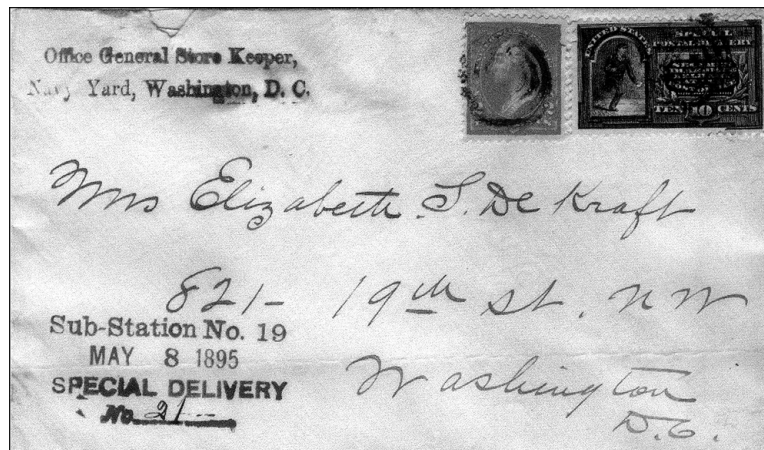 Office General Store Keeper,
Navy Yard, Washington, D. C.
UNITED STATES
SPECIAL
POSTAL DELIVERY
TEN 10 CENTS
Mrs Elizabeth S. De Kraft
821- 19th st. N W
Washington
D.C.
Sub-Station No. 19
MAY 8 1895
SPECIAL DELIVERY
No. 21